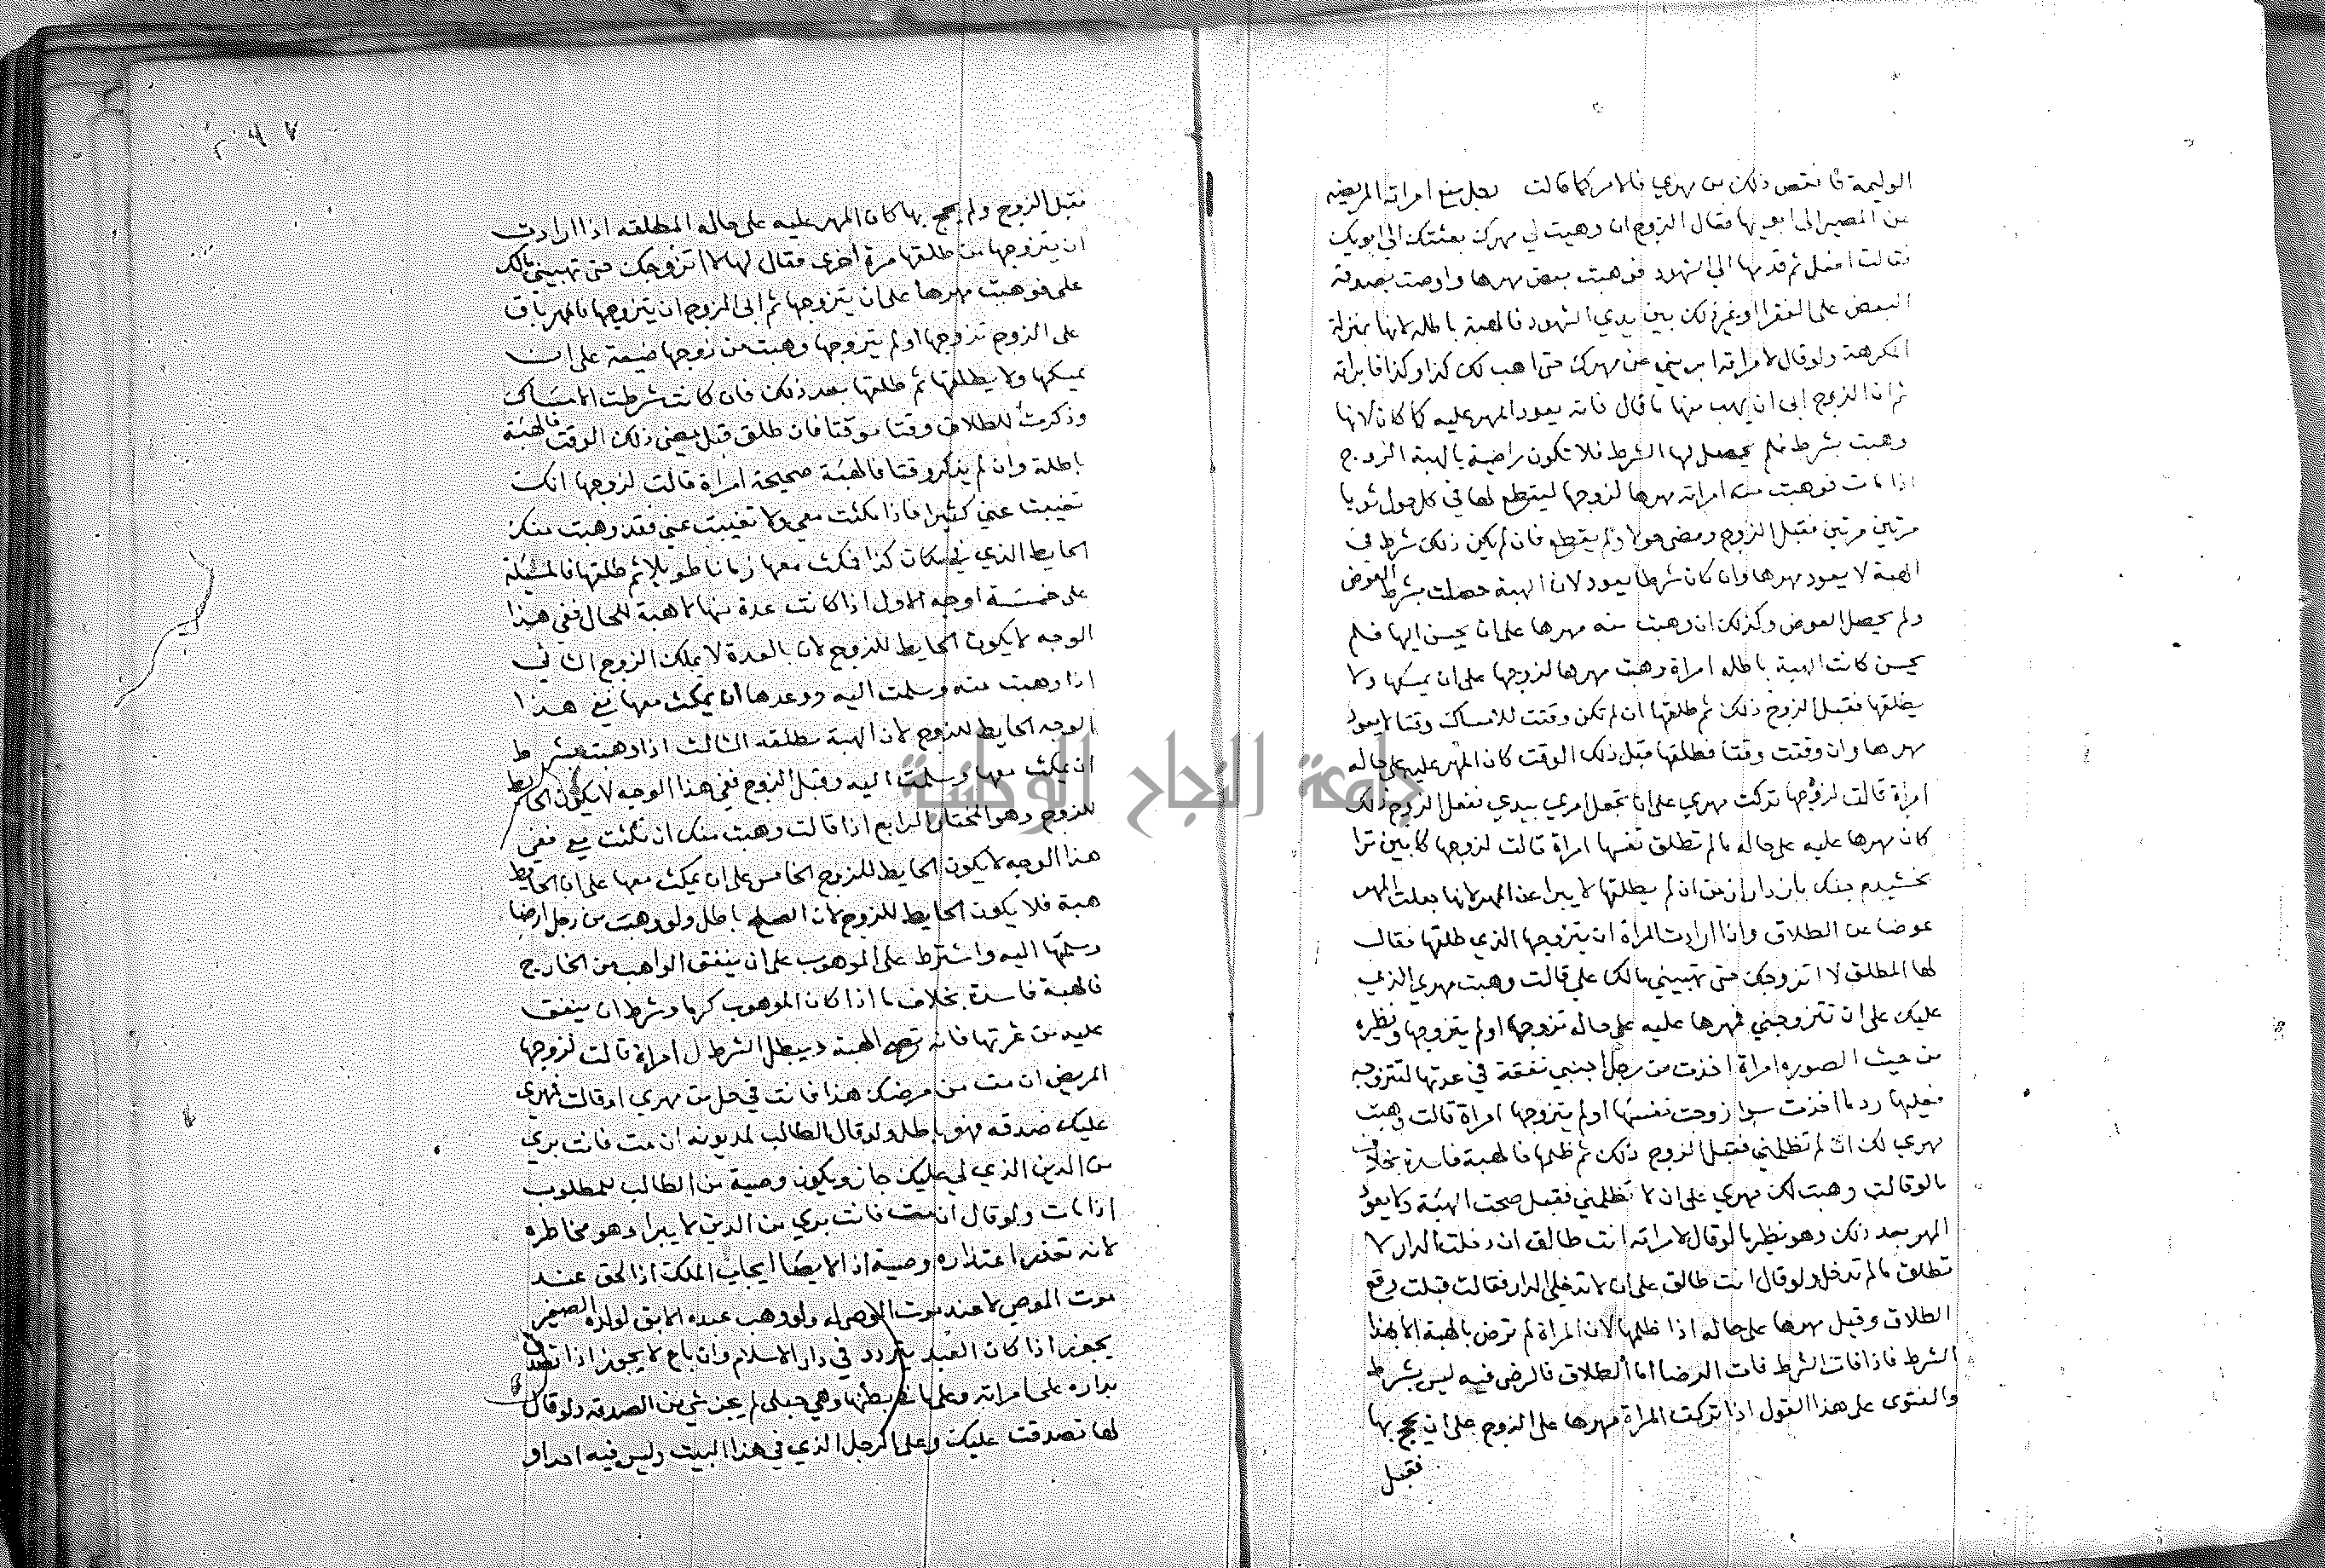 الوليمة فانقص ذلك من مهري فالامر كما قالت رجل منع امراته المريضه
من المصير الى ابويها فقال الزوج ان وهبت لي مهرك بعثتك الى ابويك
فقالت افعل ثم قدمها الى الشهود فوهبت بعض مهرها واوصت بصدقة
البعض على الفقرا او غير ذلك بين يدي الشهود فالهبة باطله لانها بمنزلة
المكرهة ولو قال لامراته ابريني عن مهرك حتى اهب لك كذا وكذا فابراته
ثم ان الزوج ابى ان يهب منها ما قال فانه يعود المهر عليه كما كان لانها
وهبت بشرط فلم يحصل لها الشرط فلا تكون راضية بالهبة الزوج
اذا مات فوهبت منه امراته مهرها لزوجها ليقطع لها في كل حول ثوبا
مرتين مرتين فقبل الزوج ومضى حولا ولم يقطع فان لم يكن ذلك شرط في
الهبة لا يعود مهرها وان كان شرطا يعود لان الهبة حصلت بشرط العوض
ولم يحصل العوض وكذلك ان وهبت منه مهرها على ان يحسن اليها فلم
يحسن كانت الهبة باطله امراة وهبت مهرها لزوجها على ان يمسكها ولا
يطلقها فقبل الزوج ذلك ثم طلقها ان لم تكن وقتت للامساك وقتا لا يعود
مهرها وان وقتت وقتا فطلقها قبل ذلك الوقت كان المهر عليه على حاله
امراة قالت لزوجها تركت مهري على ان تجعل امري بيدي ففعل الزوج ذلك
كان مهرها عليه على حاله ما لم تطلق نفسها امراة قالت لزوجها كابين ترا
بخشيدم جنك باز دار از من ان لم يطلقها لا يبرا عن المهر لانها جعلت المهر
عوضا عن الطلاق واذا ارادت المراة ان يتزوجها الذي طلقها فقال
لها المطلق لا اتزوجك حتى تهبيني مالك علي قالت وهبت مهري الذي
عليك على ان تتزوجني فمهرها عليه على حاله تزوجها او لم يتزوجها ونظيره
من حيث الصوره امراة اخذت من رجل اجنبي نفقة في عدتها لتتزوجه
فعليها رد ما اخذت سوا زوجت نفسها او لم يتزوجها امراة قالت وهبت
مهري لك ان لم تظلمني فقبل الزوج ذلك ثم ظلمها فالهبة فاسدة بخلاف
مالو قالت وهبت لك مهري على ان لا تظلمني فقبل صحت الهبة ولا يعود
المهر بعد ذلك وهو نظير ما لو قال لامراته انت طالق ان دخلت الدار لا
تطلق ما لم تدخل ولو قال انت طالق على ان لا تدخلي الدار فقالت قبلت وقع
الطلاق وقيل مهرها على حاله اذا ظلمها لان المراة لم ترض بالهبة الا بهذا
الشرط فاذا فات الشرط فات الرضا اما الطلاق فالرضى فيه ليس بشرط
والفتوى على هذا القول اذا تركت المراة مهرها على الزوج على ان يحج بها
فقبل
فقبل الزوج ولم يحج بها كان المهر عليه على حاله المطلقه اذا ارادت
ان يتزوجها من طلقها مرة اخرى فقال لها لا اتزوجك حتى تهبيني مالك
علي فوهبت مهرها على ان يتزوجها ثم ابى الزوج ان يتزوجها فالمهر باق
على الزوج تزوجها او لم يتزوجها وهبت من زوجها ضيعة على ان
يمسكها ولا يطلقها ثم طلقها بعد ذلك فان كانت شرطت الامساك
وذكرت للطلاق وقتا موقتا فان طلق قبل مضى ذلك الوقت فالهبة
باطلة وان لم يذكر وقتا فالهبة صحيحة امراة قالت لزوجها انك
تغيبت عني كثيرا فاذا مكثت معي ولا تغيبت عني فقد وهبت منك
الحايط الذي في مكان كذا فمكث معها زمانا طويلا ثم طلقها فالمسئلة
على خمسة اوجه الاول اذا كانت عدة منها لا هبة للحال ففي هذا
الوجه لا يكون الحايط للزوج لان بالعدة لا يملك الزوج الثاني
اذا وهبت منه وسلمت اليه ووعدها ان يمكث معها ففي هذا
الوجه الحايط للزوج لان الهبة مطلقه الثالث اذا وهبت بشرط
ان يمكث معها وسلمت اليه وقبل الزوج ففي هذا الوجه لا يكون الحايط
للزوج وهو المختار الرابع اذا قالت وهبت منك ان مكثت معي ففي
هذا الوجه لا يكون الحايط للزوج الخامس على ان يمكث معها على ان الحايط
هبة فلا يكون الحايط للزوج لان الصلح باطل ولو وهبت من رجل ارضا
وسلمها اليه واشترط على الموهوب على ان ينفق الواهب من الخارج
فالهبة فاسدة بخلاف ما اذا كان الموهوب كرما وشرط ان ينفق
عليه من ثمرتها فانه تصح الهبة ويبطل الشرط امراة قالت لزوجها
المريض ان مت من مرضك هذا فانت في حل من مهري او قالت فمهري
عليك صدقه فهو باطل ولو قال الطالب لمديونه ان مت فانت بري
من الدين الذي لي عليك جاز ويكون وصية من الطالب للمطلوب
اذا مات ولو قال ان مت فانت بري من الدين لا يبرا وهو مخاطره
لانه تعذر اعتذاره وصية اذ الايصا ايجاب الملك اذ الحق عند
موت الموصي لا عند موت الموصى له ولو وهب عبده الابق لولده الصغير
يجوز اذا كان العبد يتردد في دار الاسلام وان باع لا يجوز اذا تصدق
بداره على امراته وعلى ما في بطنها وهي حبلى لم يجز شي من الصدقه ولو قال
لها تصدقت عليك وعلى الرجل الذي في هذا البيت وليس فيه احد او
جامعة النجاح الوطنية